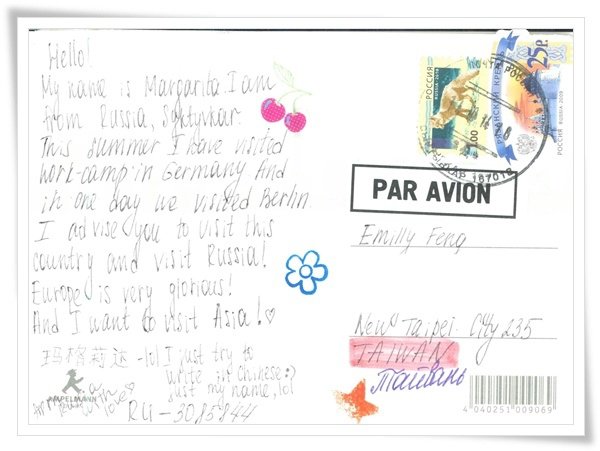 Hello!
My name is Margarita. I am
from Russia, Syktyvkar.
This summer I have visited
work-camp in Germany. And
in one day we visited Berlin.
I advise you to visit this
country and visit Russia!
Europe is very glorious!
And I want to visit Asia! ♡
玛格莉达 -lol I just try to
write in chinese :)
just my name, lol
AMPELMANN
with
love
RU-3085844
РОССИЯ 2009
РЯЗАНСКИЙ КРЕМЛЬ
25р.
РОССИЯ RUSSIA 2009
167018
PAR AVION
Emilly Feng
New Taipei City 235
TAIWAN
Тайвань
4 040251 009069